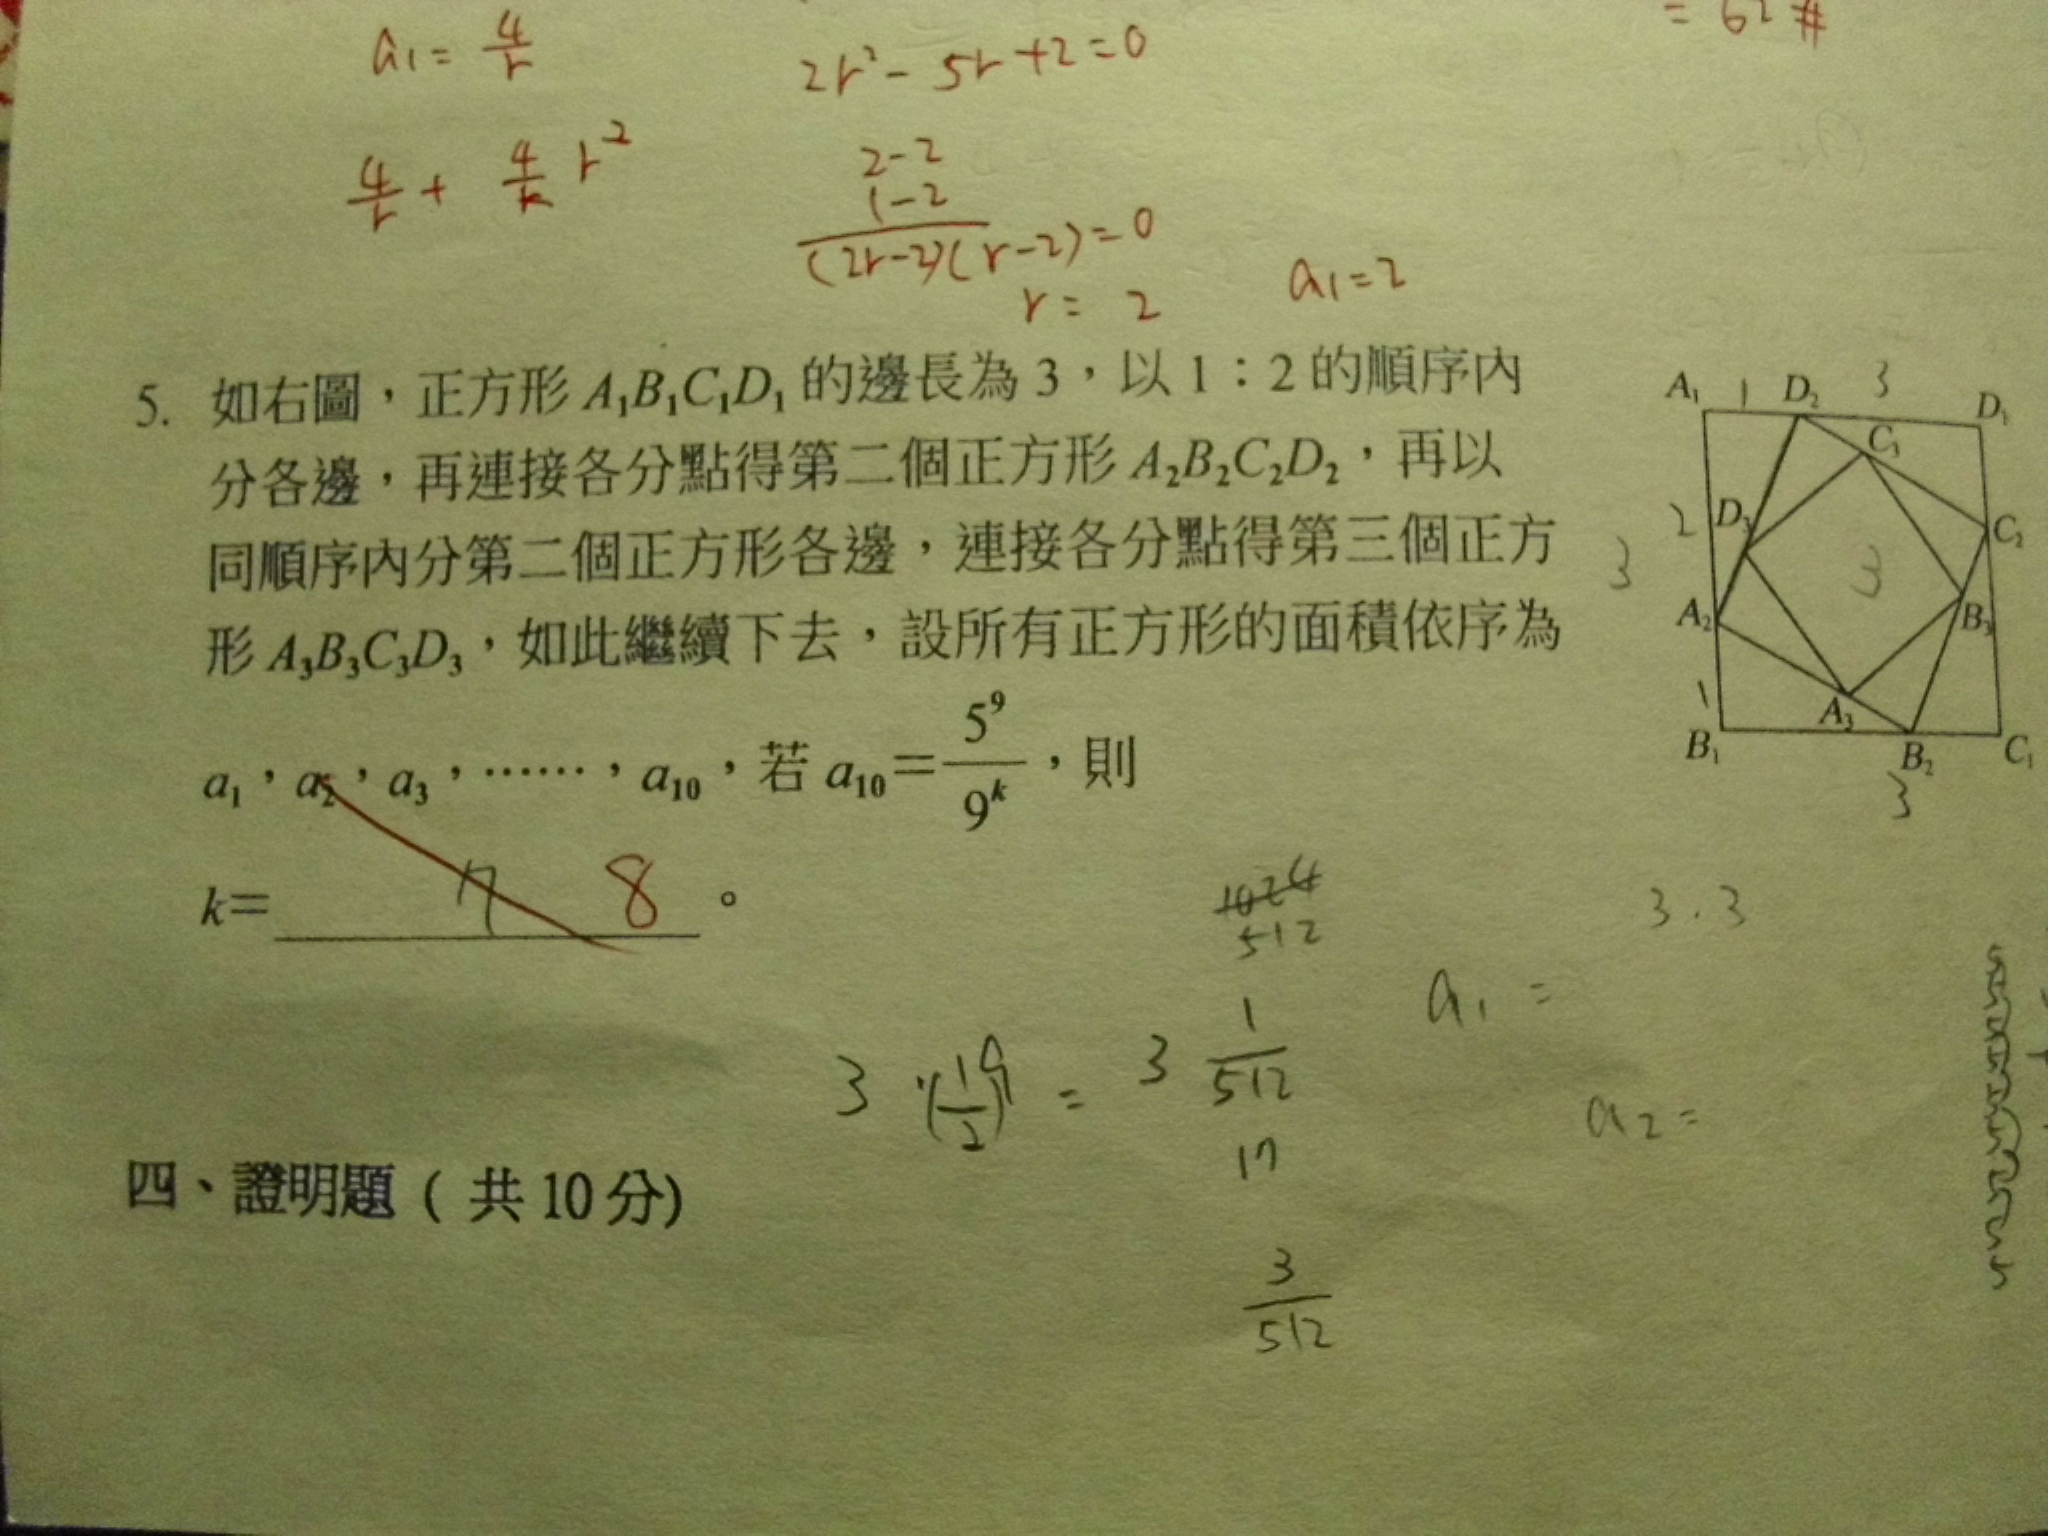 = 62 #
a₁ = 4/r
2r² - 5r + 2 = 0
4/r + 4/r r²
2 - 2
1 - 2
(2r-2)(r-2) = 0
r = 2
a₁ = 2
5. 如右圖，正方形 A₁B₁C₁D₁ 的邊長為 3，以 1：2 的順序內
分各邊，再連接各分點得第二個正方形 A₂B₂C₂D₂，再以
同順序內分第二個正方形各邊，連接各分點得第三個正方
形 A₃B₃C₃D₃，如此繼續下去，設所有正方形的面積依序為
a₁，a₂，a₃，……，a₁₀，若 a₁₀＝5⁹/9ᵏ，則
k＝ 7 8 。
A₁ 1 D₂ 3 D₁
C₃
2 D₃ C₂
3 3
A₂ B₃
1 A₃
B₁ B₂ C₁
3
1024
512
3 . 3
a₁ =
3 · (1/2)⁹ = 3 1/512
a₂ =
17
3/512
四、證明題 ( 共 10 分)